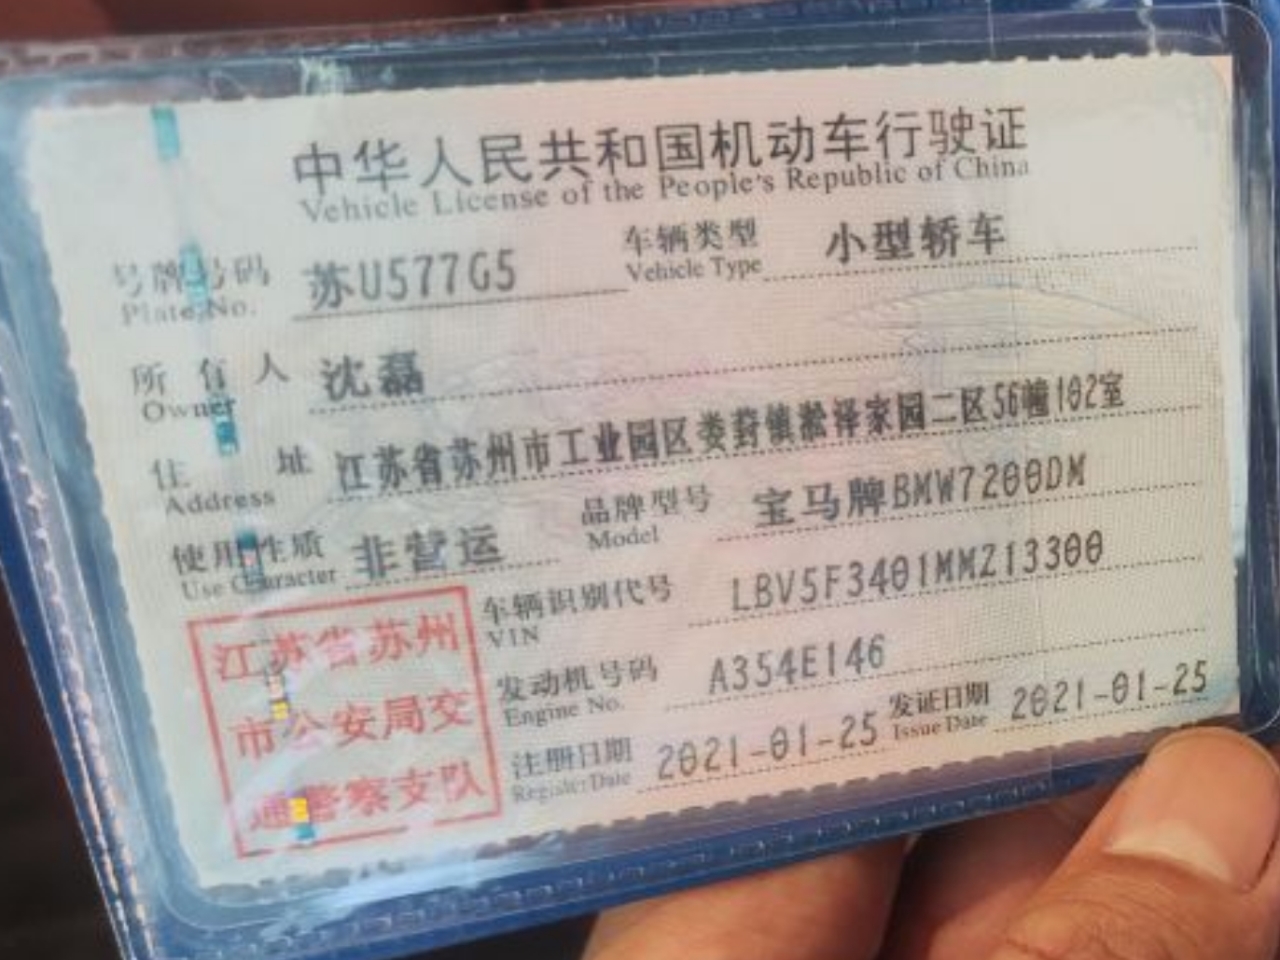 中华人民共和国机动车行驶证
Vehicle License of the People's Republic of China
号牌号码 苏U577G5 车辆类型 小型轿车
Plate No. Vehicle Type
所有人 沈磊
Owner
住址 江苏省苏州市工业园区娄葑镇淞泽家园二区56幢102室
Address
使用性质 非营运 品牌型号 宝马牌BMW7200DM
Use Character Model
车辆识别代号 LBV5F3401MMZ13300
VIN
发动机号码 A354E146
Engine No.
注册日期 2021-01-25 发证日期 2021-01-25
Register Date Issue Date
江苏省苏州
市公安局交
通警察支队